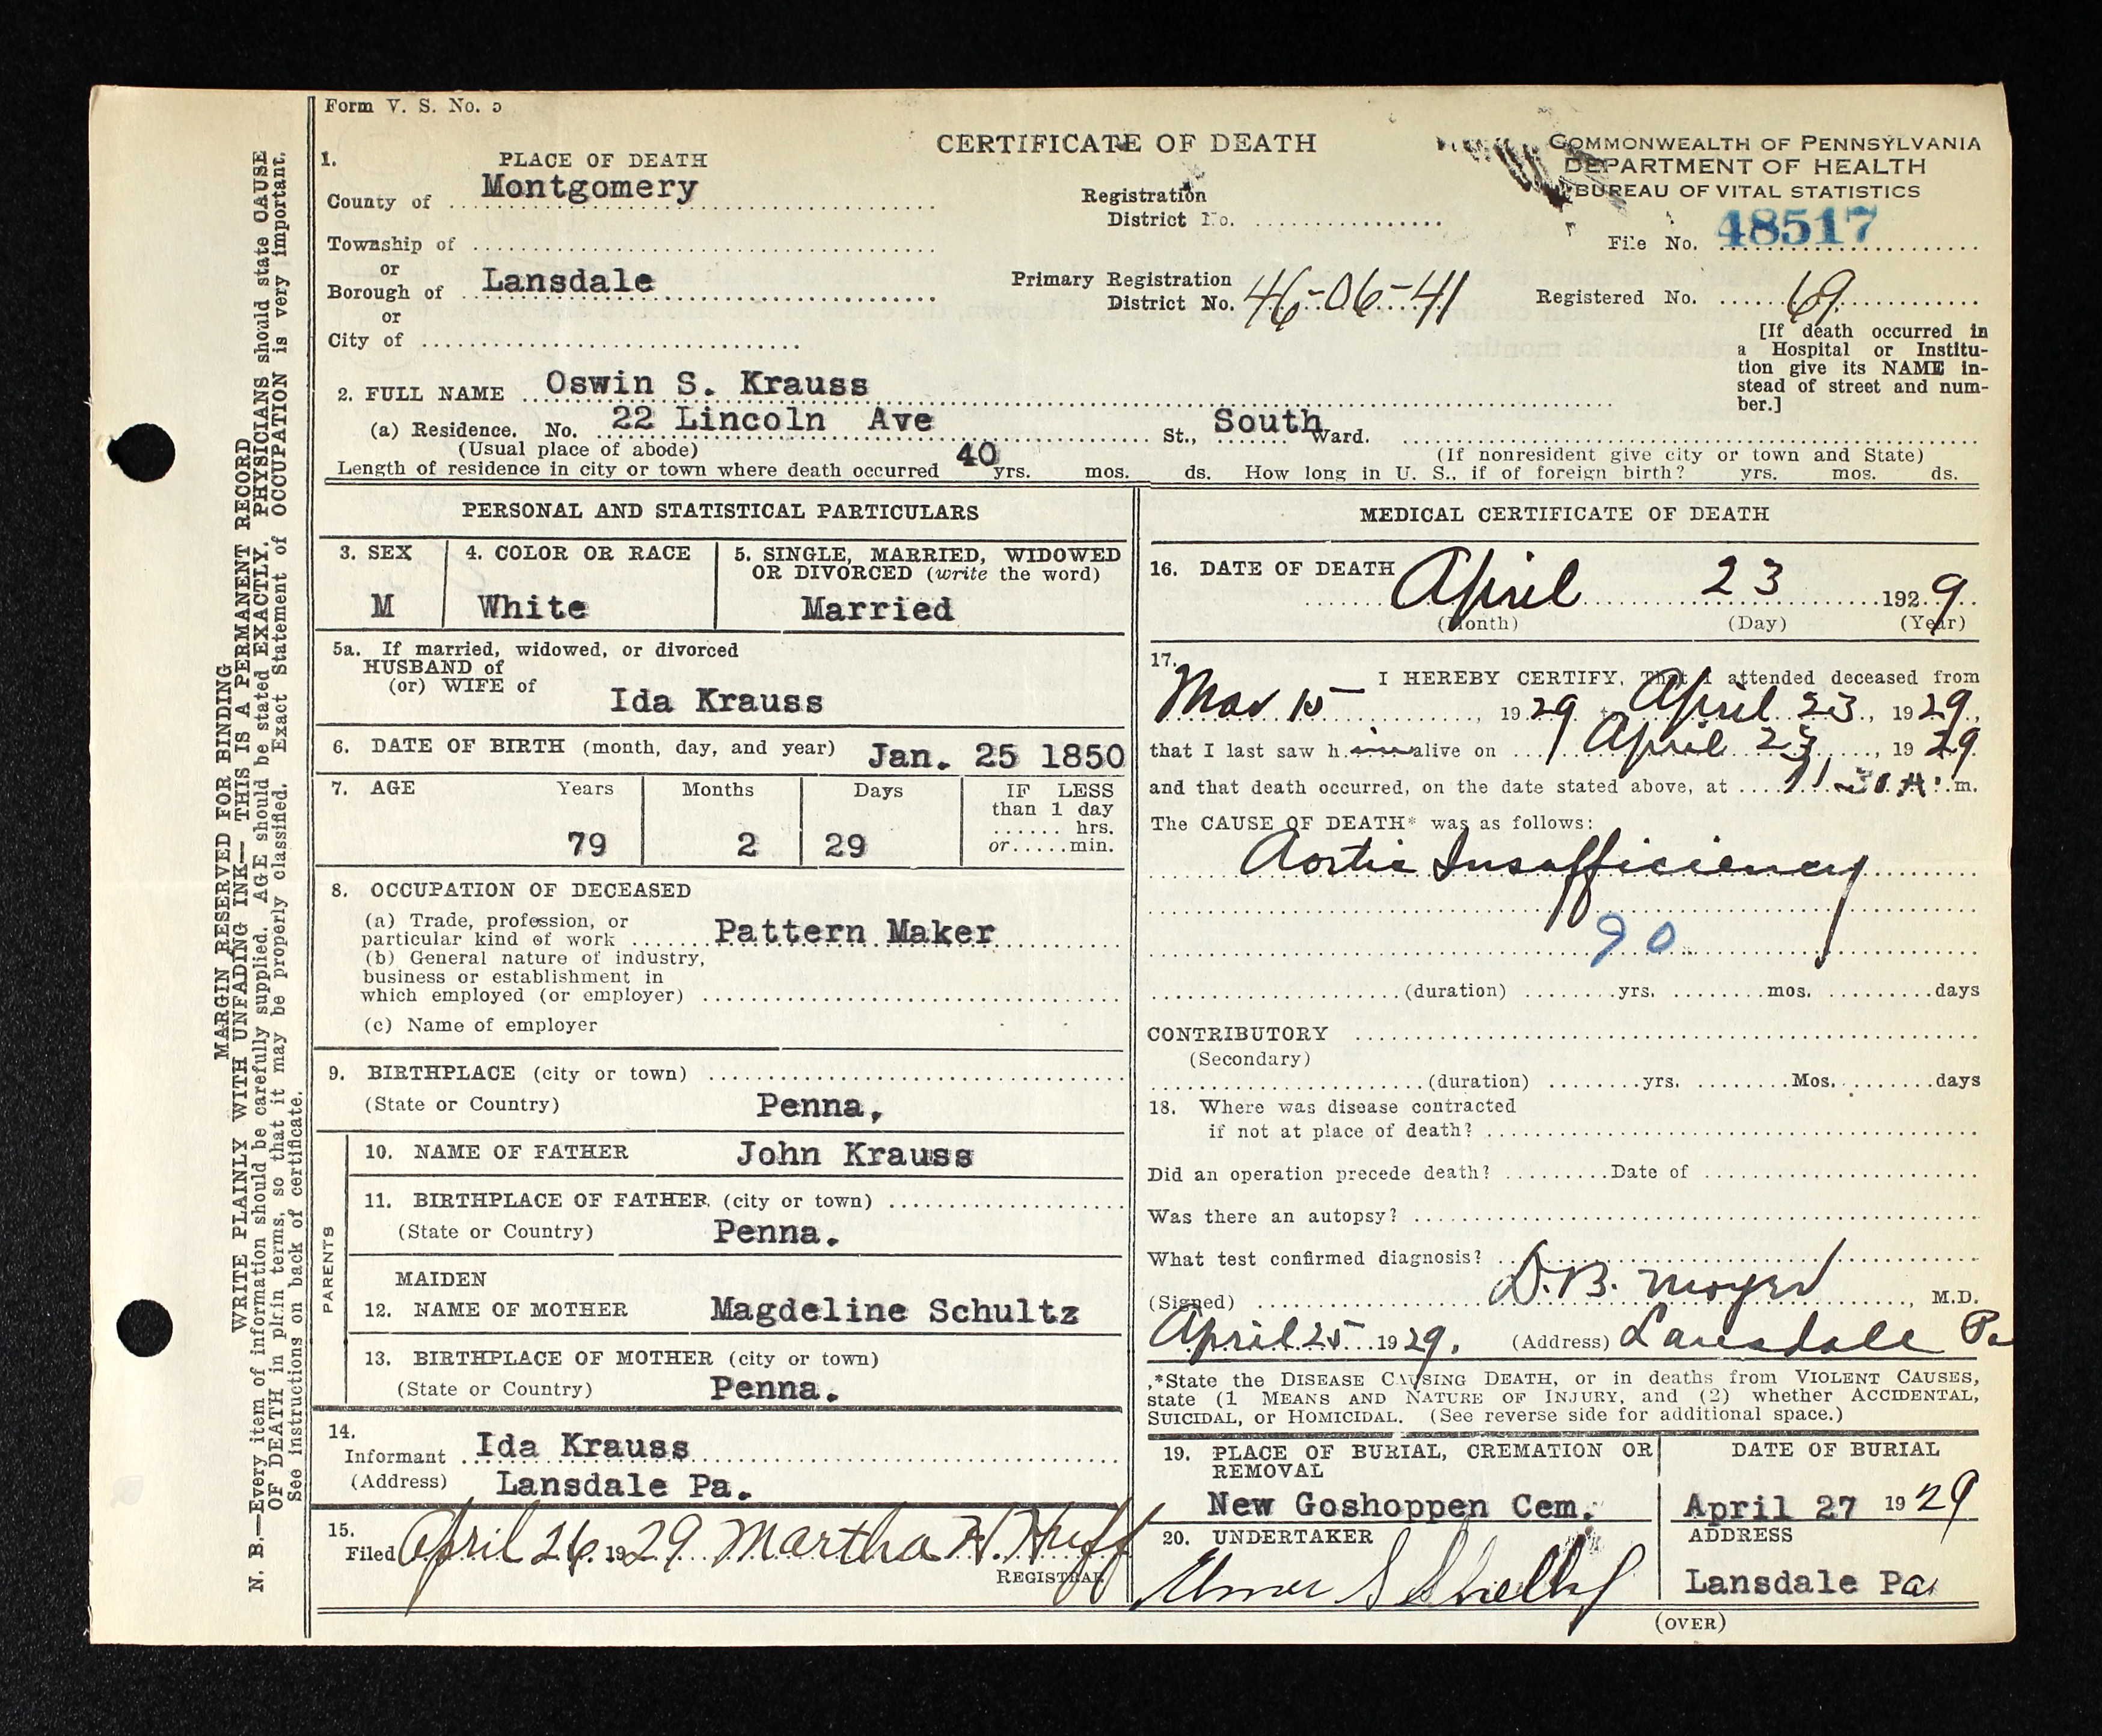 Form V. S. No. 5
CERTIFICATE OF DEATH
COMMONWEALTH OF PENNSYLVANIA
DEPARTMENT OF HEALTH
BUREAU OF VITAL STATISTICS
1. PLACE OF DEATH
County of Montgomery
Township of
or
Borough of Lansdale
or
City of
Registration
District No.
Primary Registration
District No. 46-06-41
File No. 48517
Registered No. 69
[If death occurred in
a Hospital or Institu-
tion give its NAME in-
stead of street and num-
ber.]
2. FULL NAME Oswin S. Krauss
(a) Residence. No. 22 Lincoln Ave St., South Ward.
(Usual place of abode) (If nonresident give city or town and State)
Length of residence in city or town where death occurred 40 yrs. mos. ds. How long in U. S., if of foreign birth? yrs. mos. ds.
PERSONAL AND STATISTICAL PARTICULARS
3. SEX
M
4. COLOR OR RACE
White
5. SINGLE, MARRIED, WIDOWED
OR DIVORCED (write the word)
Married
5a. If married, widowed, or divorced
HUSBAND of
(or) WIFE of
Ida Krauss
6. DATE OF BIRTH (month, day, and year) Jan. 25 1850
7. AGE Years Months Days IF LESS
than 1 day
hrs.
or min.
79 2 29
8. OCCUPATION OF DECEASED
(a) Trade, profession, or
particular kind of work Pattern Maker
(b) General nature of industry,
business or establishment in
which employed (or employer)
(c) Name of employer
9. BIRTHPLACE (city or town)
(State or Country) Penna,
PARENTS
10. NAME OF FATHER John Krauss
11. BIRTHPLACE OF FATHER (city or town)
(State or Country) Penna.
MAIDEN
12. NAME OF MOTHER Magdeline Schultz
13. BIRTHPLACE OF MOTHER (city or town)
(State or Country) Penna.
14.
Informant Ida Krauss
(Address) Lansdale Pa.
15.
Filed April 26, 1929 Martha H. Huff
REGISTRAR
MEDICAL CERTIFICATE OF DEATH
16. DATE OF DEATH April 23 1929
(Month) (Day) (Year)
17. I HEREBY CERTIFY, That I attended deceased from
Mar 15, 1929 April 23, 1929,
that I last saw him alive on April 23, 1929
and that death occurred, on the date stated above, at 11-30 A. m.
The CAUSE OF DEATH* was as follows:
Aortic Insufficiency
90
(duration) yrs. mos. days
CONTRIBUTORY
(Secondary)
(duration) yrs. Mos. days
18. Where was disease contracted
if not at place of death?
Did an operation precede death? Date of
Was there an autopsy?
What test confirmed diagnosis?
(Signed) D. B. Moyer, M.D.
April 25 1929. (Address) Lansdale Pa
*State the DISEASE CAUSING DEATH, or in deaths from VIOLENT CAUSES,
state (1 MEANS AND NATURE OF INJURY, and (2) whether ACCIDENTAL,
SUICIDAL, or HOMICIDAL. (See reverse side for additional space.)
19. PLACE OF BURIAL, CREMATION OR
REMOVAL
New Goshoppen Cem.
DATE OF BURIAL
April 27 1929
20. UNDERTAKER
Elmer S Shelly
ADDRESS
Lansdale Pa
(OVER)
MARGIN RESERVED FOR BINDING
WRITE PLAINLY WITH UNFADING INK—THIS IS A PERMANENT RECORD
N. B.—Every item of information should be carefully supplied. AGE should be stated EXACTLY. PHYSICIANS should state CAUSE
OF DEATH in plain terms, so that it may be properly classified. Exact Statement of OCCUPATION is very important.
See instructions on back of certificate.